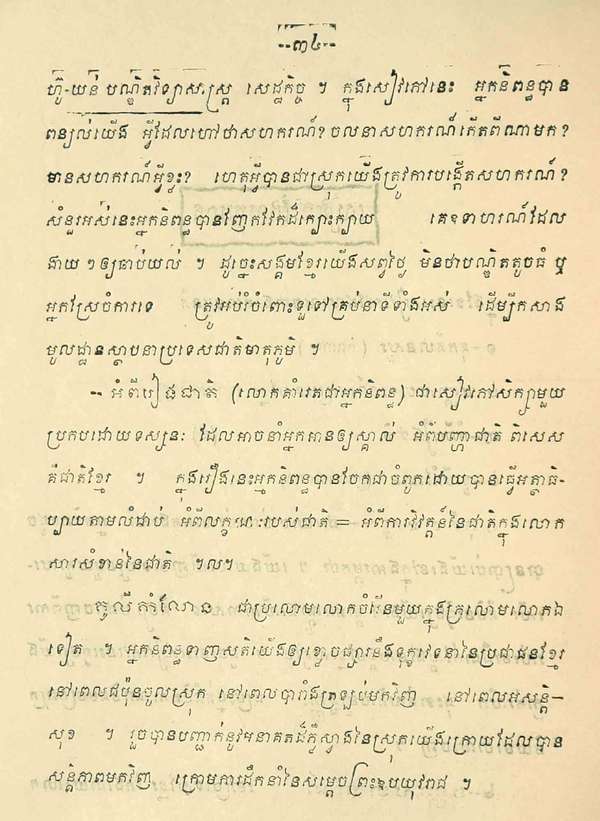 --៣៤--
ហ៊ូ-យន់ បណ្ឌិតវិទ្យាសាស្ត្រ សេដ្ឋកិច្ច ។ ក្នុងសៀវភៅនេះ អ្នកនិពន្ធបាន
ពន្យល់យើង អ្វីដែលហៅថាសហករណ៍? ចលនាសហករណ៍កើតពីណាមក?
មានសហករណ៍អ្វីខ្លះ? ហេតុអ្វីបានជាស្រុកយើងត្រូវការបង្កើតសហករណ៍?
សំនួរអស់នេះអ្នកនិពន្ធបានញែកវែកដ៏ក្បោះក្បាយ គេឧទាហរណ៍ដែល
ងាយៗឲ្យឆាប់យល់ ។ ដូច្នេះសង្គមខ្មែរយើងសព្វថ្ងៃ មិនថាបណ្ឌិតតូចធំ ឬ
អ្នកស្រែចំការទេ ត្រូវអប់រំចំពោះខ្លួនទៅគ្រប់នាទីទាំងអស់ ដើម្បីកសាង
មូលដ្ឋានស្ថាបនាប្រទេសជាតិមាតុភូមិ ។
-- អំពីរឿងជាតិ (លោកគាំរេតជាអ្នកនិពន្ធ) ជាសៀវភៅសិក្សាមួយ
ប្រកបដោយទស្សនៈ ដែលអាចនាំអ្នកអានឲ្យស្គាល់ អំពីបញ្ហាជាតិ ពិសេស
គឺជាតិខ្មែរ ។ ក្នុងរឿងនេះអ្នកនិពន្ធបានចែកជាចំពូកដោយបានធ្វើអត្ថាធិ-
ប្បាយតាមលំដាប់ អំពីលក្ខណៈរបស់ជាតិ = អំពីការវិវត្តន៍នៃជាតិក្នុងលោក
សារសំខាន់នៃជាតិ ។ល។
កូលីកំណែន ជាប្រលោមលោកចំរើនមួយក្នុងប្រលោមលោកឯ
ទៀត ។ អ្នកនិពន្ធទាញសតិយើងឲ្យខ្លោចផ្សារនឹងទុក្ខវេទនានៃប្រជាជនខ្មែរ
នៅពេលជប៉ុនចូលស្រុក នៅពេលបារាំងត្រឡប់មកវិញ នៅពេលអសន្តិ-
សុខ ។ រួចបានបញ្ជាក់នូវអនាគតដ៏ភ្លឺស្វាងនៃស្រុកយើងក្រោយដែលបាន
សន្តិភាពមកវិញ ក្រោមការដឹកនាំនៃសម្តេចព្រះឧបយុវរាជ ។